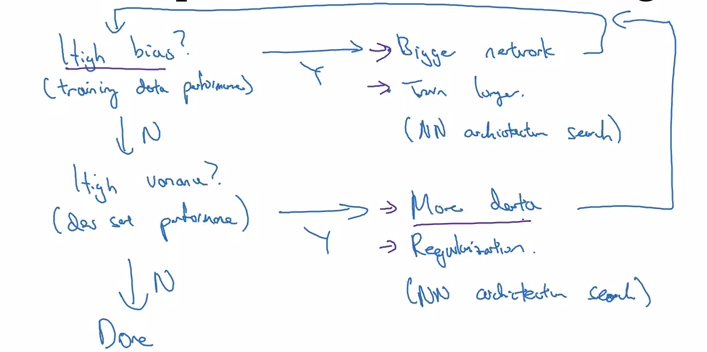 High bias?
(training data performance)
Y
Bigger network
Train longer.
(NN architecture search)
N
High variance?
(dev set performance)
Y
More data
Regularization.
(NN architecture search)
N
Done